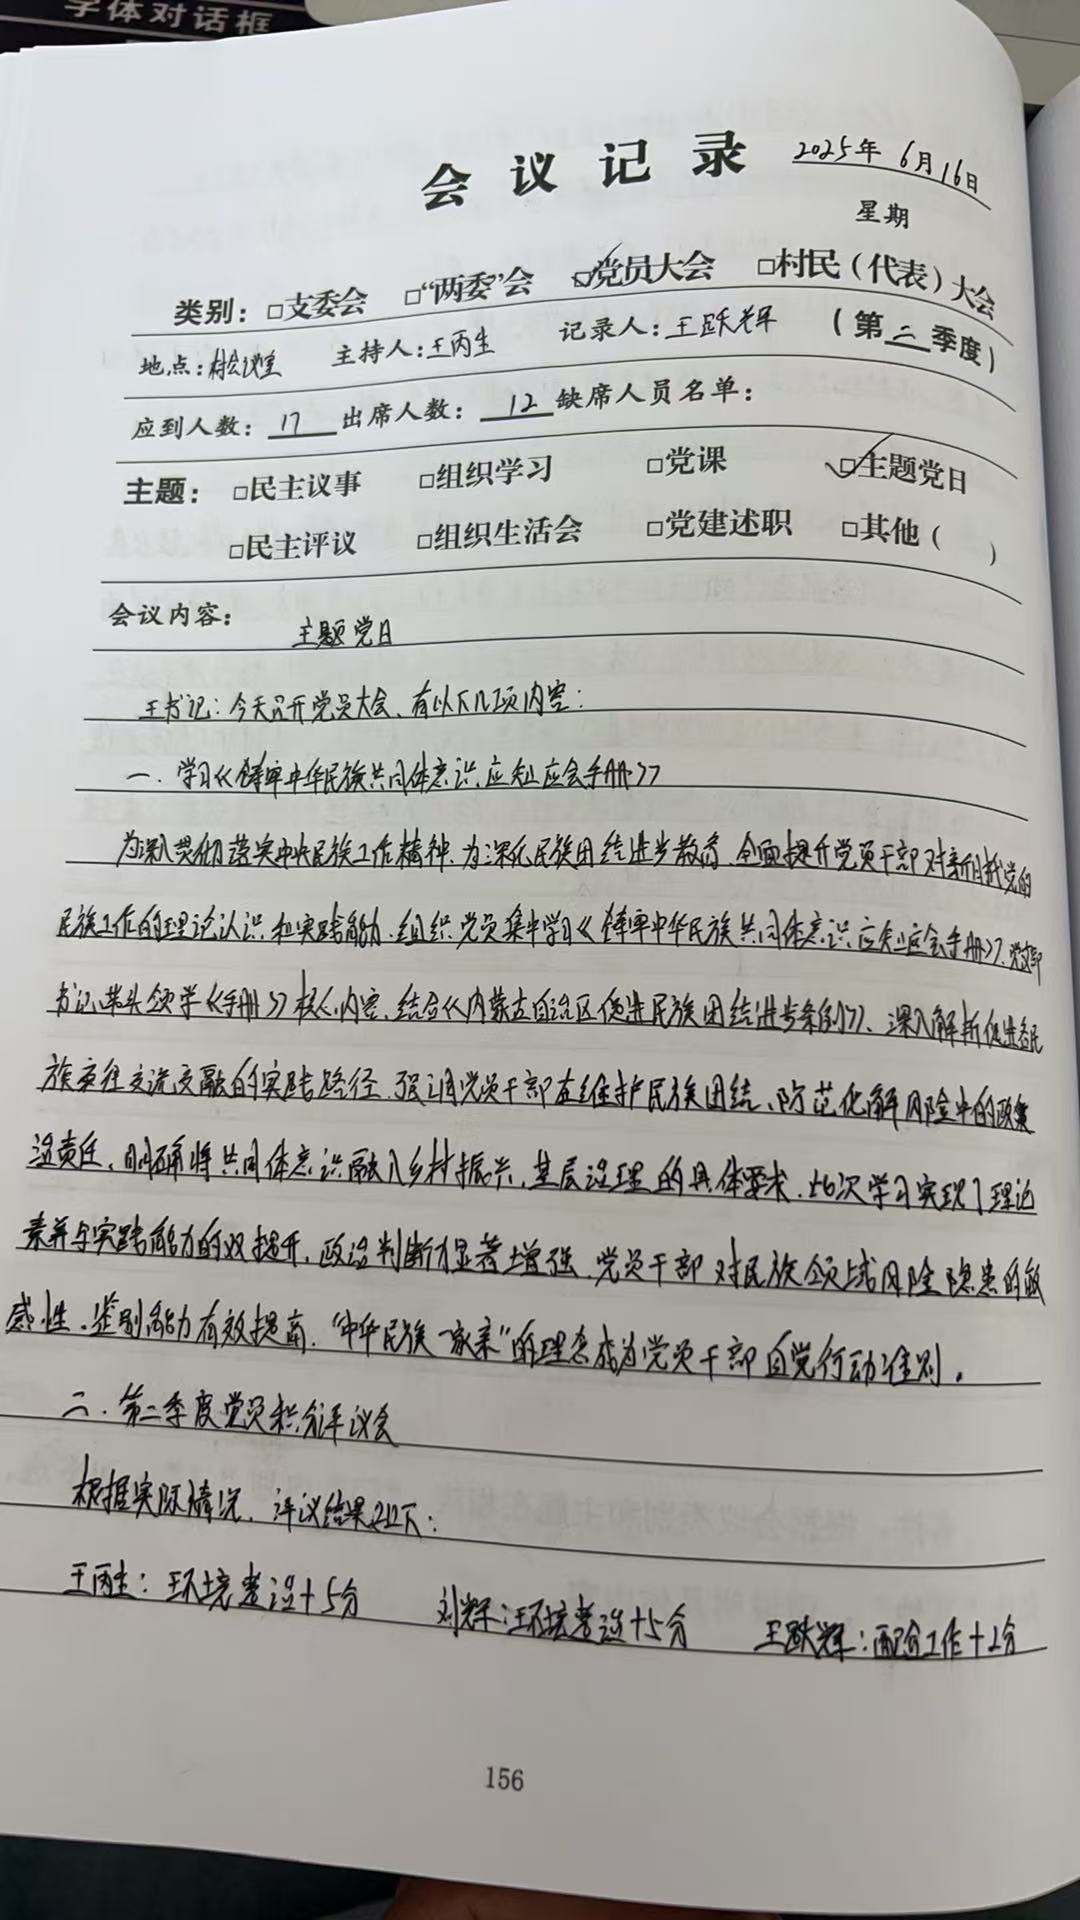 字体对话框
会议记录 2025年6月16日
星期
类别：□支委会 □“两委”会 ☑党员大会 □村民（代表）大会
地点：村会议室 主持人：王丙生 记录人：王跃辉 （第二季度）
应到人数：17 出席人数：12 缺席人员名单：
主题：□民主议事 □组织学习 □党课 ☑主题党日
□民主评议 □组织生活会 □党建述职 □其他（ ）
会议内容：主题党日
王书记：今天召开党员大会、有以下几项内容：
一．学习《铸牢中华民族共同体意识应知应会手册》
为深入贯彻落实中央民族工作精神、为深化民族团结进步教育、全面提升党员干部对新时代党的
民族工作的理论认识和实践能力、组织党员集中学习《铸牢中华民族共同体意识应知应会手册》、党支部
书记带头领学《手册》核心内容、结合《内蒙古自治区促进民族团结进步条例》、深入解析促进各民
族交往交流交融的实践路径、强调党员干部在维护民族团结、防范化解风险中的政
治责任、明确将共同体意识融入乡村振兴、基层治理的具体要求．此次学习实现了理论
素养与实践能力的双提升、政治判断力显著增强、党员干部对民族领域风险隐患的敏
感性、鉴别能力有效提高．“中华民族一家亲”的理念成为党员干部自觉行动准则．
二．第二季度党员积分评议会
根据实际情况、评议结果如下：
王丙生：环境整治+5分 刘辉：环境整治+5分 王跃辉：配合工作+2分
156